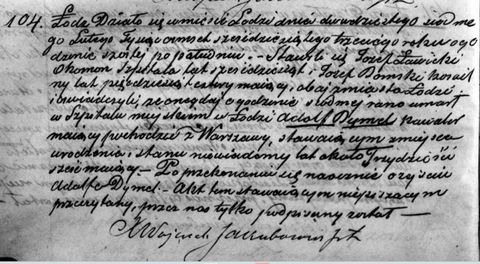 104. Łódź Działo się w mieście Łodzi dnia dwudziestego siódme
go Lutego Tysiąc ośmset sześćdziesiątego trzeciego roku o go
dzinie szóstej po południu. — Stawili się Józef Sawicki
Ekonom szpitala lat sześćdziesiąt i Józef
lat pięćdziesiąt cztery mający, obaj z miasta Łodzi
i oświadczyli, że onegdaj o godzinie siódmej rano umarł
w Szpitalu miejskim w Łodzi Adolf Dymel Kawaler
mający pochodzić z Warszawy, stawającym z miejsca
urodzenia i stanu niewiadomy lat około Trzydzieści
sześć mający — Po przekonaniu się naocznie o zejściu
Adolfa Dymel. — Akt ten stawającym niepiszącym
przeczytany, przez nas tylko podpisany został —
X Wojciech Jakubowicz